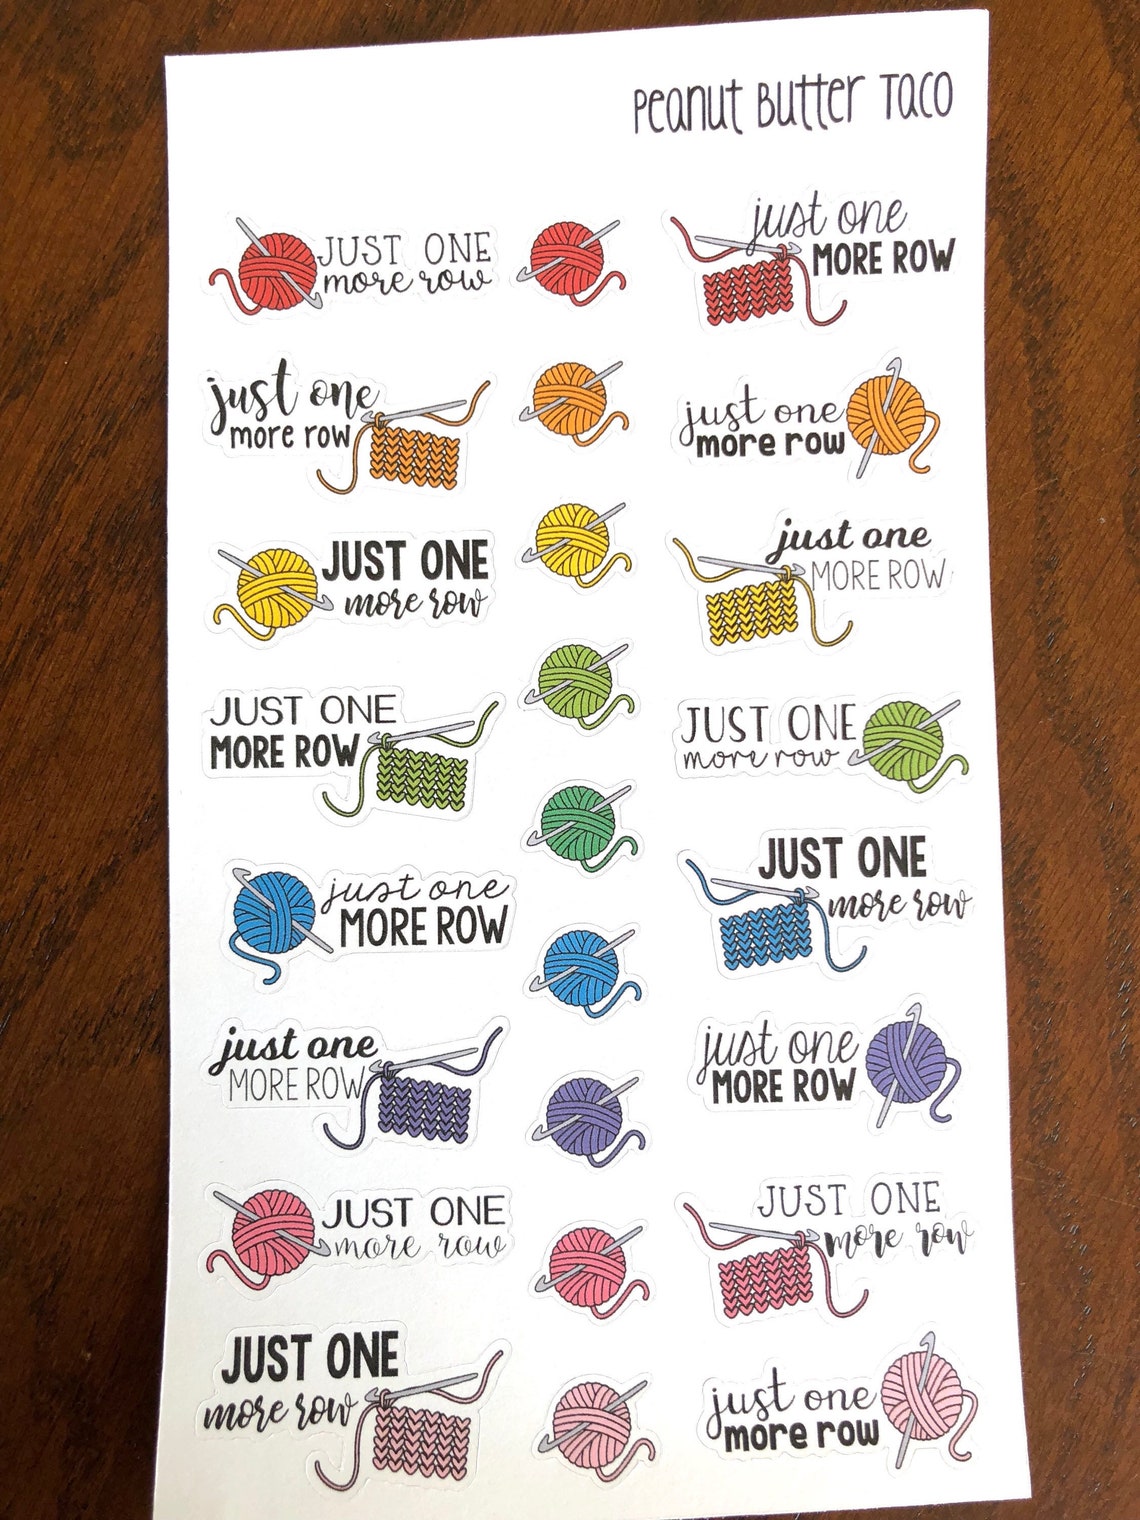 Peanut Butter Taco
JUST ONE
more row
just one
MORE ROW
just one
more row
just one
more row
JUST ONE
more row
just one
MORE ROW
JUST ONE
MORE ROW
JUST ONE
more row
just one
MORE ROW
JUST ONE
more row
just one
MORE ROW
just one
MORE ROW
JUST ONE
more row
JUST ONE
more row
JUST ONE
more row
just one
more row